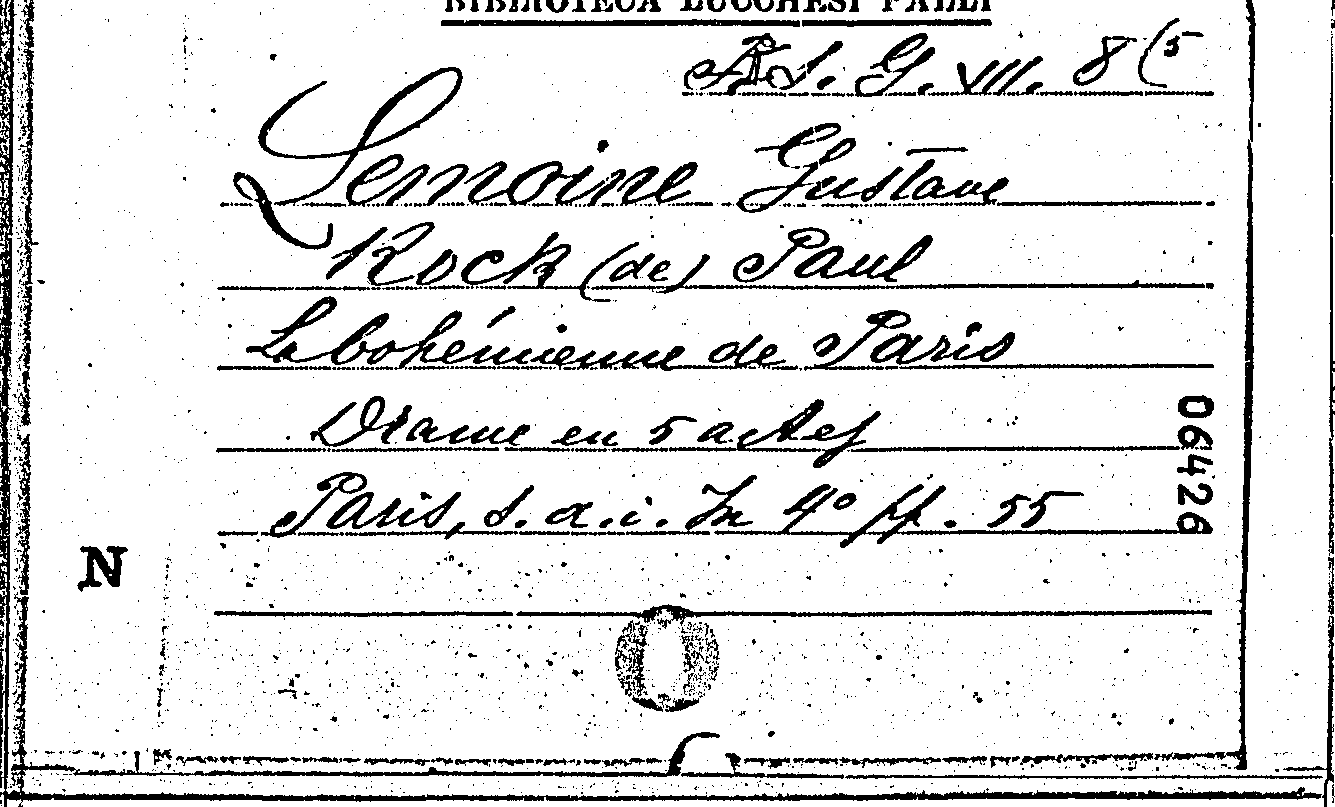 BIBLIOTECA LUCCHESI PALLI
G. VIII. 8 (5
Lemoine Gustave
Kock (de) Paul
La bohémienne de Paris
Drame en 5 actes
Paris, s. a. i. In 4° pp. 55
06426
N